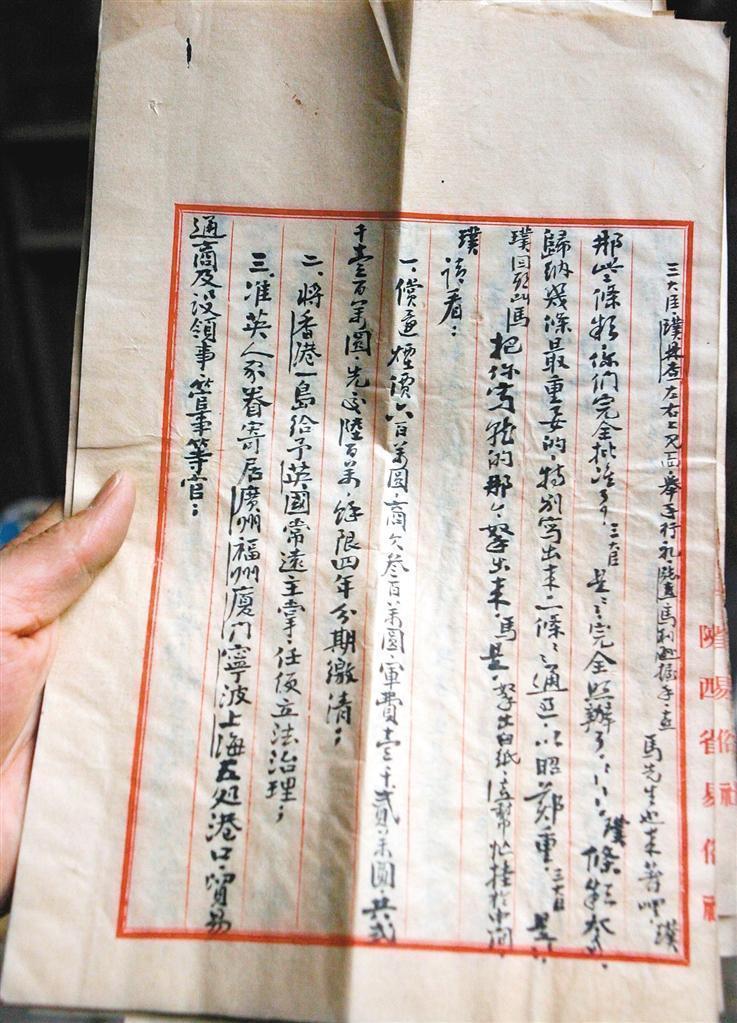 三大臣、璞鼎查左右上又面、舉手行礼、馬利遜握手、馬先生也来着呢、璞
那些條款、你們完全批准了、三大臣 是三完全照辦了、璞 條款太多、
歸納幾條最重要的、特別寫出来、一條三通過、以昭鄭重、三大臣 是、
璞回頭叫馬 把你寫就的那个拏出来、馬是、拏出白紙、幫忙挂於中間、
璞 請看：
一、償還煙價六百萬圓、商欠叁百萬圓、軍費壹千貳百萬圓、共貳
千壹百萬圓、先交陸百萬、餘限四年分期繳清；
二、將香港一島給予英國常遠主掌、任便立法治理；
三、准英人家眷寄居廣州福州廈门寧波上海五処港口、貿易
通商及设领事、管事等官；
陝西省易俗社